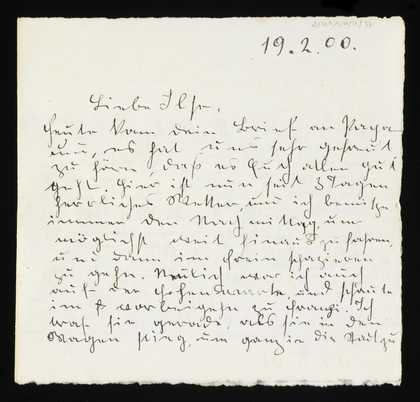 19.2.00.
Liebe Ilse.
Heute kam dein Brief an Papa
und es hat uns sehr gefreut
zu hören, daß es Euch allen gut
geht. Hier ist nun seit 3 Tagen
herrliches Wetter, und ich benutze
immer den Nachmittag, um
möglichst weit hinaus zu fahren,
und dann im Freien spazieren
zu gehn. Neulich war ich auch
auf der Hohen Warte, und schaute
im vorbeigehn zu Franzi. Ich
traf sie gerade, als sie in den
Wagen stieg, um ganz in die Stadt zu